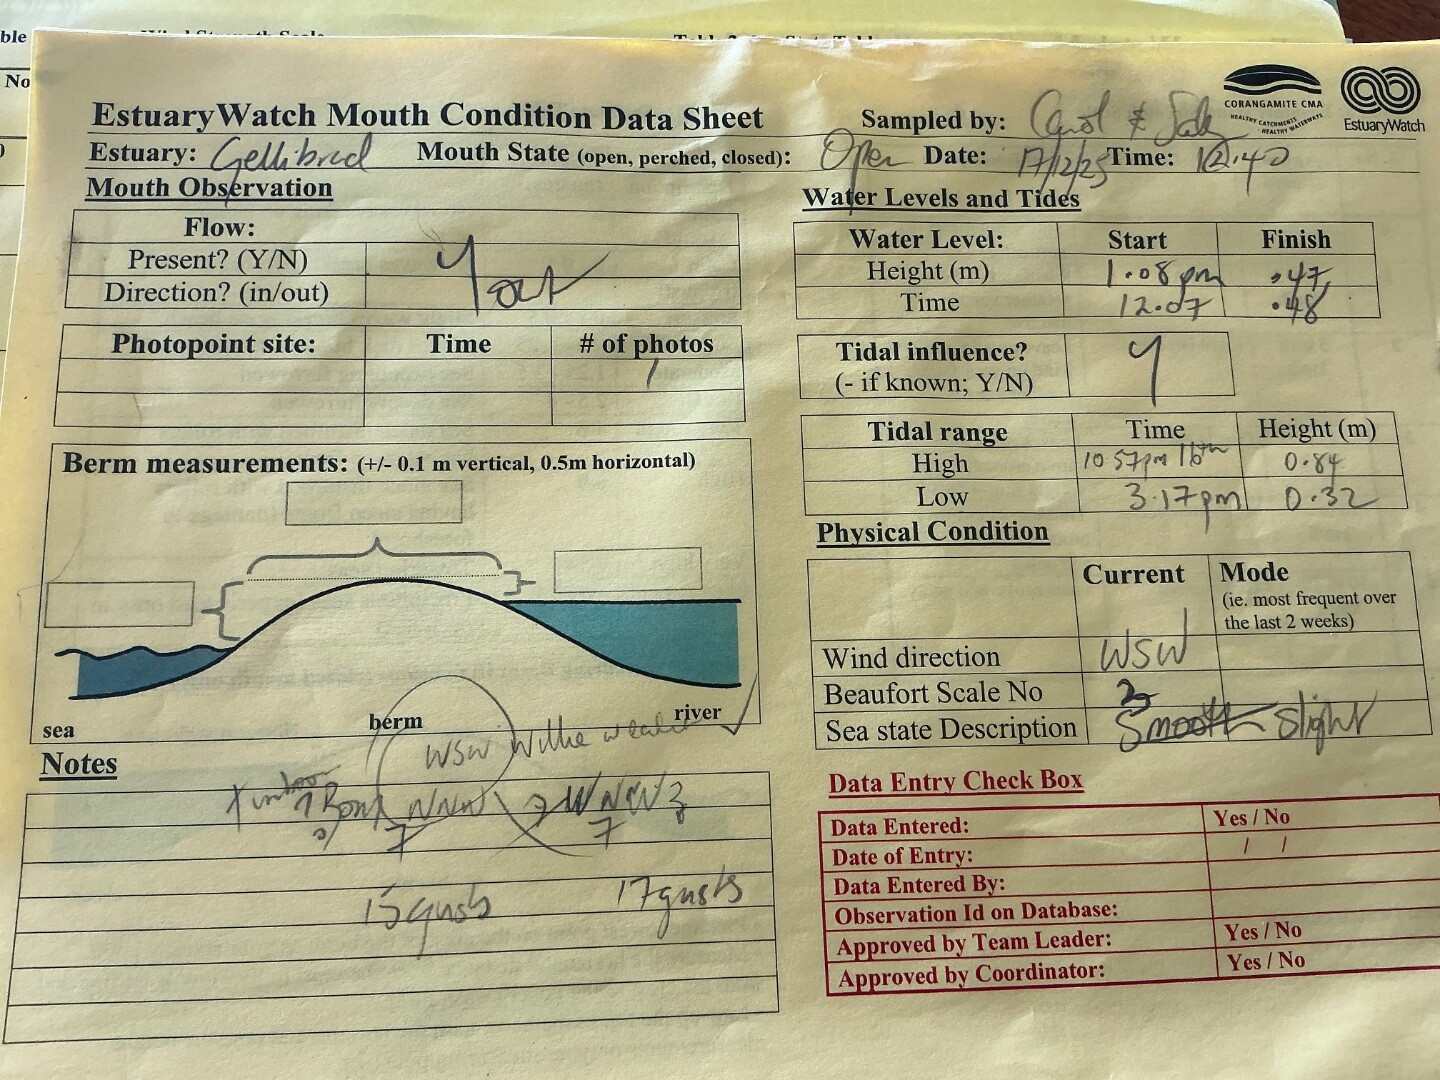 ble
Wind Strength Scale
No
CORANGAMITE CMA
HEALTHY CATCHMENTS
HEALTHY WATERWAYS
EstuaryWatch
EstuaryWatch Mouth Condition Data Sheet
Sampled by: Carol &
Estuary: Gellibrad Mouth State (open, perched, closed): Open Date: 17/12/25 Time: 12.40
Mouth Observation
Flow:
Present? (Y/N) Y
Direction? (in/out) out
Photopoint site: Time # of photos
1
Berm measurements: (+/- 0.1 m vertical, 0.5m horizontal)
sea berm river
WSW Willie weather
Notes
NNW WNW 3
7 7
15 gusts 17 gusts
Water Levels and Tides
Water Level: Start Finish
Height (m) 1.08pm .47
Time 12.07 .48
Tidal influence? Y
(- if known; Y/N)
Tidal range Time Height (m)
High 10 57pm 16th 0.84
Low 3.17pm 0.32
Physical Condition
Current Mode
(ie. most frequent over
the last 2 weeks)
Wind direction WSW
Beaufort Scale No
Sea state Description Smooth Slight
Data Entry Check Box
Data Entered: Yes / No
Date of Entry: / /
Data Entered By:
Observation Id on Database:
Approved by Team Leader: Yes / No
Approved by Coordinator: Yes / No